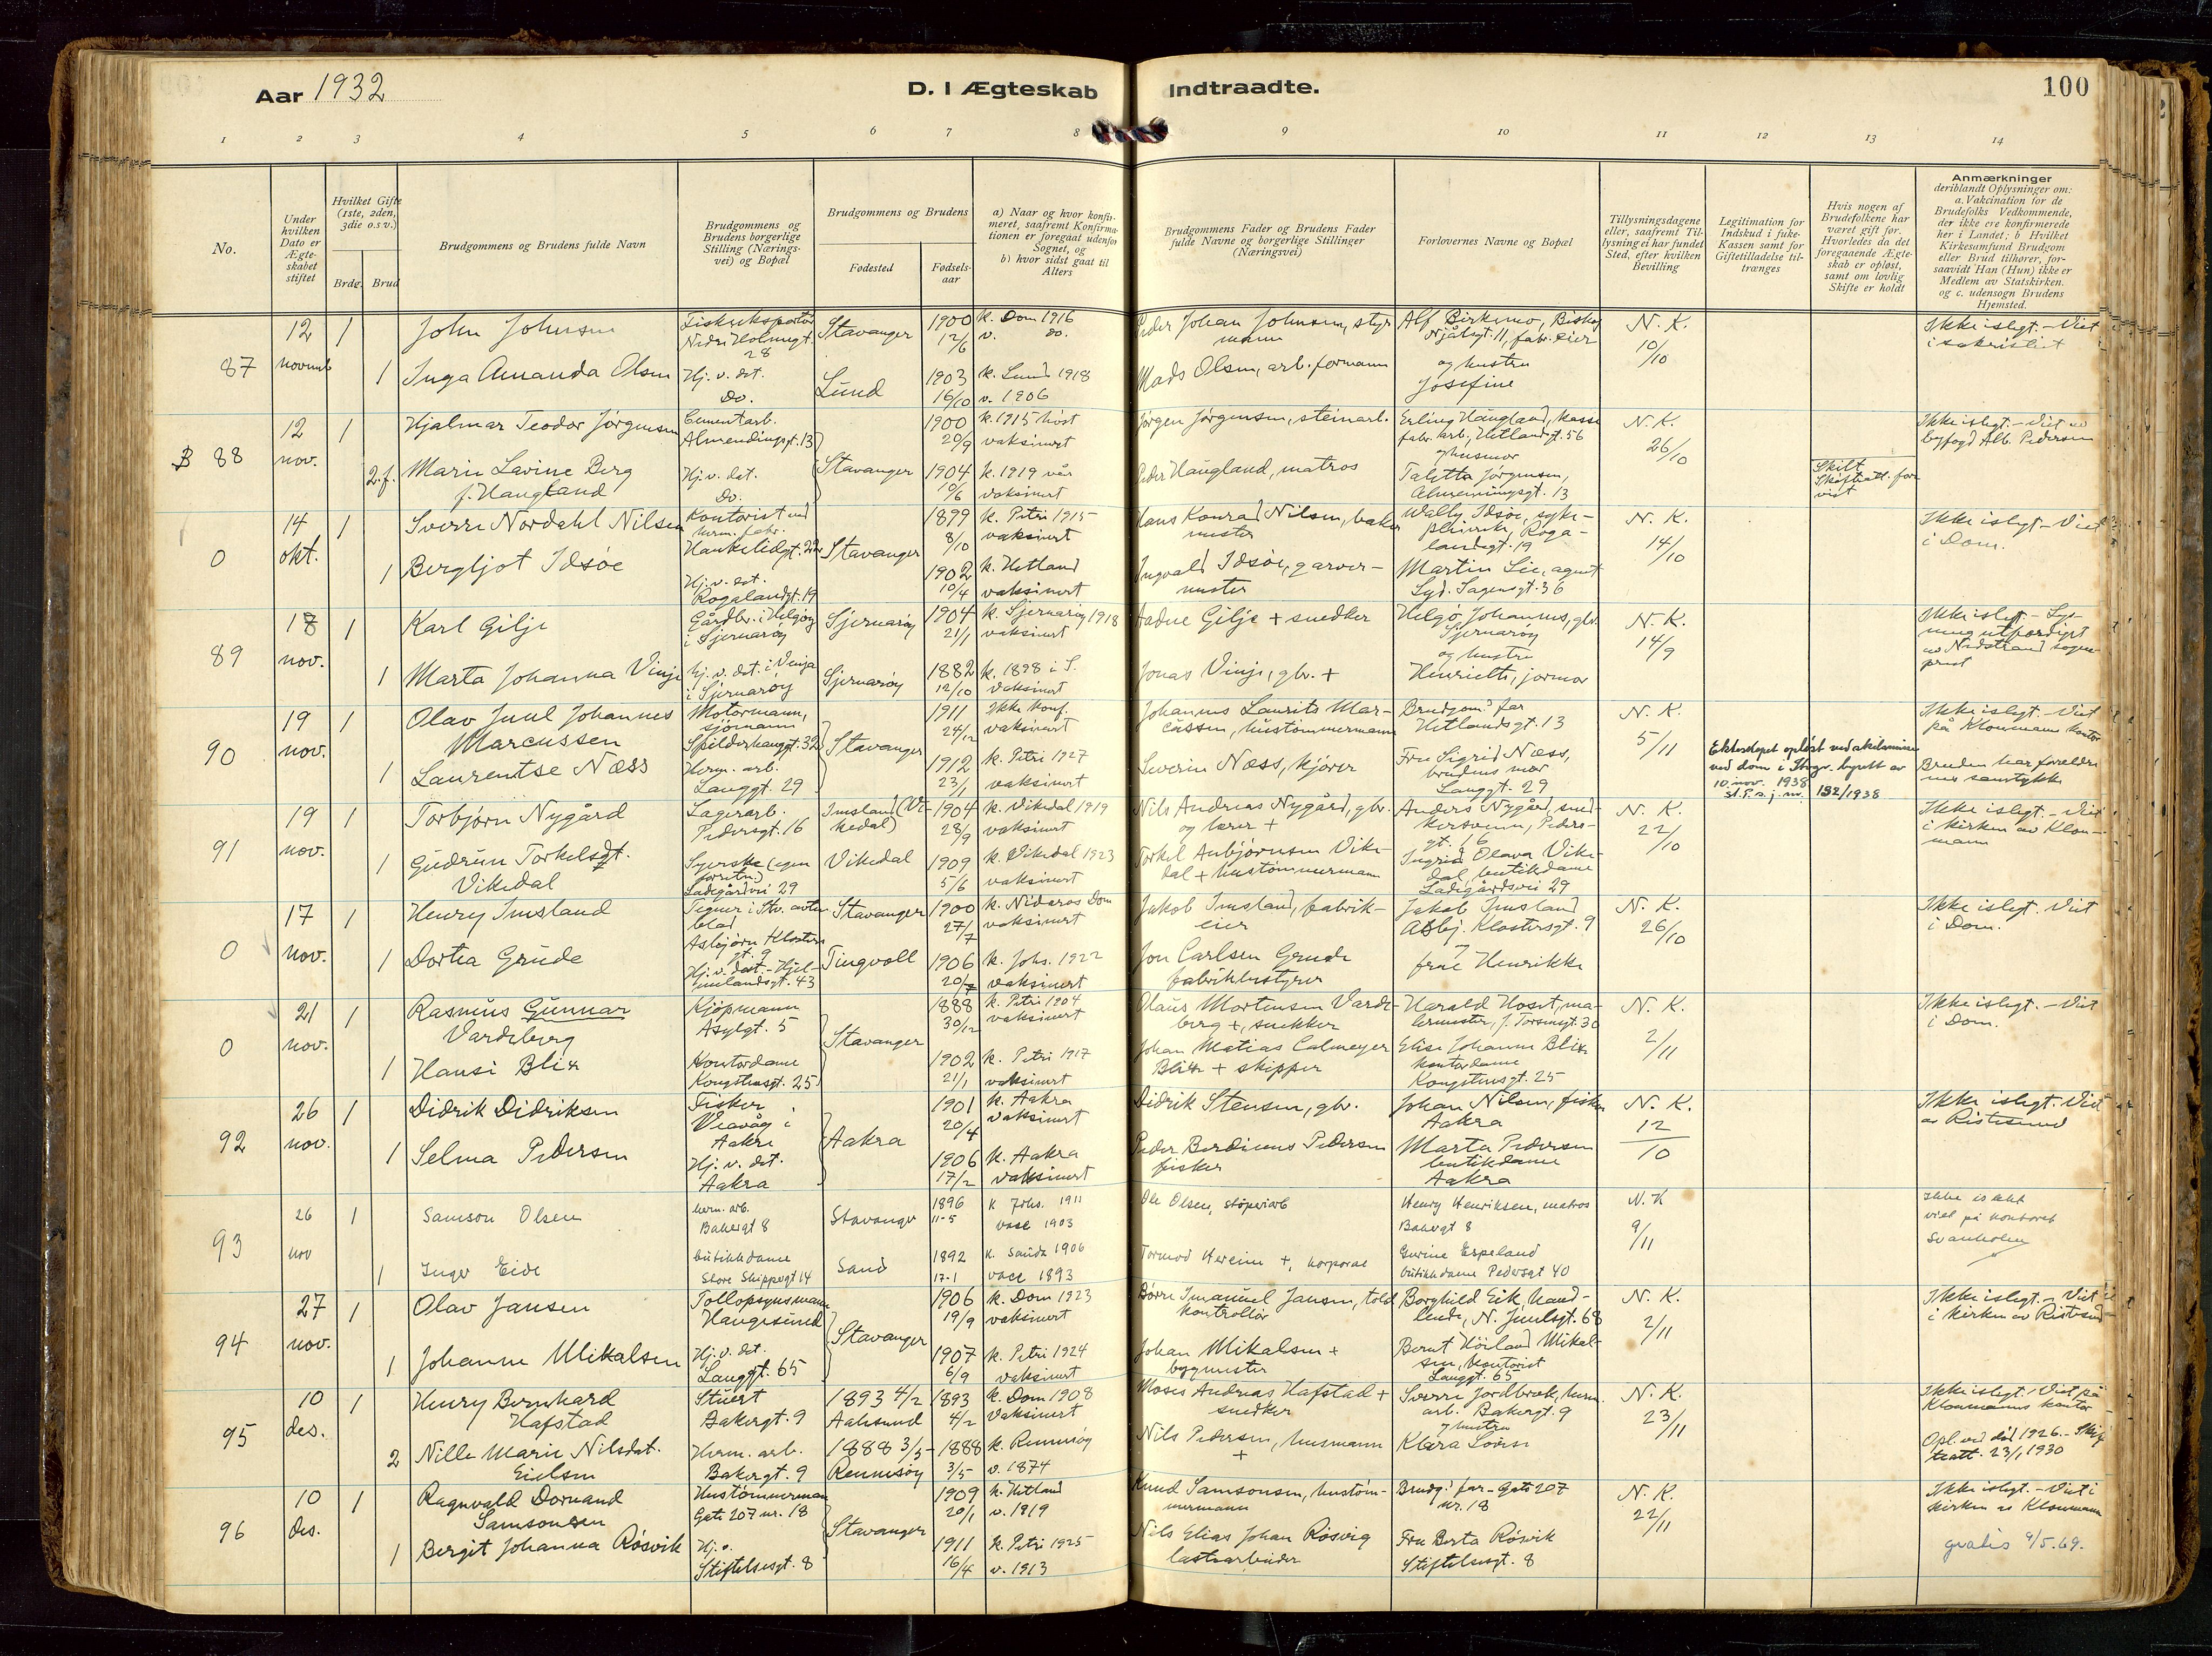 Aar 1932
D. I Ægteskab Indtraadte.
100
1 2 3 4 5 6 7 8 9 10 11 12 13 14
No.
Under hvilken Dato er Ægteskabet stiftet
Hvilket Gifte (1ste, 2den, 3die o.s.v.)
Brdg. Brud
Brudgommens og Brudens fulde Navn
Brudgommens og Brudens borgerlige Stilling (Næringsvei) og Bopæl
Brudgommens og Brudens
Fødested
Fødselsaar
a) Naar og hvor konfirmeret, saafremt Konfirmationen er foregaat udenfor Sognet, og
b) hvor sidst gaat til Alters
Brudgommens Fader og Brudens Fader fulde Navne og borgerlige Stillinger (Næringsvei)
Forlovernes Navne og Bopæl
Tillysningsdagene eller, saafremt Tillysning ei har fundet Sted, efter hvilken Bevilling
Legitimation for Indskud i fuke-Kassen samt for Giftetilladelse tiltrænges
Hvis nogen af Brudefolkene har været gift før. Hvorledes da det foregaaende Ægteskab er opløst, samt om lovlig Skifte er holdt
Anmærkninger
deriblandt Oplysninger om: a. Vakcination for de Brudefolks Vedkommende, der ikke ere konfirmerede her i Landet; b Hvilket Kirkesamfund Brudgom eller Brud tilhører, forsaavidt Han (Hun) ikke er Medlem av Statskirken. og c. udensogn Brudens Hjemsted.
87
12 novemb
1 John Johnsen
Fiskeeksportør Nedre Holmegt. 28
Stavanger
1900 12/6
k. Dom 1916
v. do.
Peder Johan Johnsen, styrmann
Alf Birkemo, Biskop Njålsgt. 11, fabr.eier
N. K. 10/10
Ikke i slegt. - Viet i sakristiet
1 Inga Amanda Olsen
Hj. v. det. Do.
Lund
1903 16/10
k. Lund 1918
v. 1906
Mads Olsen, arb. formann
og hustru Josefine
B 88
12 nov.
1 Hjalmar Teodor Jørgensen
Cementarb. Almendingsgt. 13
Stavanger
1900 20/9
k. 1915 høst
vaksinert
Jørgen Jørgensen, steinarb.
Erling Haugland, kassefabr. arb., Hetlandsgt. 56
N. K. 26/10
Ikke i slegt. - Viet av byfogd Alb. Pedersen
2. f. Marie Lavine Berg f. Haugland
Hj. v. det. Do.
1904 10/6
k. 1919 vår
vaksinert
Peder Haugland, matros
og husmor Taletta Jørgensen, Almenningsgt. 13
Skilt Skifteatt. forevist
0
14 okt.
1 Sverre Nordahl Nilsen
Kontorist ved herm. fabr. Haukeligt. 22
Stavanger
1899 8/10
k. Petri 1915
vaksinert
Hans Konrad Nilsen, bakermester
Wally Idsøe, sykepleierske Rogalandsgt. 19
N. K. 14/10
Ikke i slegt - Viet i Dom.
1 Bergljot Idsøe
Hj. v. det. Rogalandgt. 19
1902 10/4
k. Hetland
vaksinert
Ingvald Idsøe, garvermester
Martin Lie, agent Lyd. Sagensgt. 36
89
18 nov.
1 Karl Gilje
Gårdbr. i Helgøy i Sjernarøy
Sjernarøy
1904 21/1
k. Sjernarøy 1918
vaksinert
Aadne Gilje + snedker
Helgø, Johannes, gbr. Sjernarøy
N. K. 14/9
Ikke i slegt. - Lysning utferdiget av Nedstrand sogneprest
1 Marta Johanna Vinje
Hj. v. det. i Vinje i Sjernarøy
Sjernarøy
1882 12/10
k. 1898 i S.
vaksinert
Jonas Vinje, gbr. +
og hustru Henriette, jormor
90
19 nov.
1 Olav Juul Johannes Marcussen
Motormann, sjømann Spilderhauggt. 32
Stavanger
1911 24/12
Ikke konf.
vaksinert
Johannes Laurits Marcussen, hustømmermann
Brudgoms far Hetlandsgt. 13
N. K. 5/11
Ikke i slegt. - Viet på Klonmanns kontor
1 Laurentse Næss
Herm. arb. Langgt. 29
1912 23/1
k. Petri 1927
vaksinert
Severin Næss, kjører
Fru Sigrid Næss, brudens mor Langgt. 29
Ekteskapet opløst ved skilsmisse ved dom i Stvgr. byrett av 10. nov. 1938 st. P. s. j. nr. 132/1938
Bruden har foreldrenes samtykke
91
19 nov.
1 Torbjørn Nygård
Lagerarb. Pedersgt. 16
Imsland (Vikedal)
1904 28/9
k. Vikedal 1919
vaksinert
Nils Andreas Nygård, gbr. og lærer +
Anders Nygård, snedkersvenn, Pedersgt. 16
N. K. 22/10
Ikke i slegt. - Viet i kirken av Klonmann
1 Gudrun Torkelsdt. Vikedal
Syerske (egen forretn.) Ladegårdsvei 29
Vikedal
1909 5/6
k. Vikedal 1923
vaksinert
Torkel Anbjørnsen Vikedal + hustømmermann
Ingrid Olava Vikedal, butikdame Ladegårdsvei 29
0
17 nov.
1 Henry Imsland
Tegner i Stv. aftenblad Asbjørn Klostersgt. 9
Stavanger
1900 27/7
k. Nidaros Dom
vaksinert
Jakob Imsland, fabrikeier
Jakob Imsland Asbj. Klostersgt. 9
N. K. 26/10
Ikke i slegt. Viet i Dom.
1 Dortea Grude
Hj. v. det. - Hjelmelandsgt. 43
Tingvoll
1906 20/7
k. Johs. 1922
vaksinert
Jon Carlsen Grude fabrikbestyrer
og frue Henrikke
0
21 nov.
1 Rasmus Gunnar Vardeberg
Kjøpmann Asylgt. 5
Stavanger
1888 30/12
k. Petri 1904
vaksinert
Olaus Mortensen Vardeberg +, snekker
Harald Hoset, malermester, J. Torsensgt. 30
N. K. 2/11
Ikke i slegt. - Viet i Dom.
1 Hansi Blix
Kontordame Kongstensgt. 25
1902 21/1
k. Petri 1917
vaksinert
Johan Matias Calmeyer Blix + skipper
Elise Johanne Blix kontordame Kongstensgt. 25
92
26 nov.
1 Didrik Didriksen
Fisker Veavåg i Aakra
Aakra
1901 20/4
k. Aakra
vaksinert
Didrik Stensen, gbr.
Johan Nilsen, fisker Aakra
N. K. 12/10
Ikke i slegt. Viet av Ristesund
1 Selma Pedersen
Hj. v. det. Aakra
1906 17/2
k. Aakra
vaksinert
Peder Berdiines Pedersen fisker
Marta Pedersen butikdame Aakra
93
26 nov
1 Samson Olsen
herm. arb. Bakergt 8
Stavanger
1896 11-5
k Johs. 1911
vacc 1903
Ole Olsen, støperiarb
Henry Henriksen, matros Bakergt 8
N. K 9/11
Ikke i slekt viet på kontoret Svanholm
1 Inger Eide
butikkdame Store Skippergt 14
Sand
1892 17-1
k. Sauda 1906
vacc 1893
Tormod Hereim +, korporal
Gurine Espeland butikkdame Pedersgt 40
94
27 nov.
1 Olav Jansen
Tollopsynsmann Haugesund
Stavanger
1906 19/9
k. Dom 1923
vaksinert
Børre Imanuel Jansen, toldkontrollør
Borghild Eik, handlende, N. Juulsgt. 68
N. K. 2/11
Ikke i slegt. - Viet i kirken av Ristesund
1 Johanne Mikalsen
Hj. v. det. Langgt. 65
1907 6/9
k. Petri 1924
vaksinert
Johan Mikalsen + bygmester
Bernt Høiland Mikalsen, kontorist Langgt. 65
95
10 des.
1 Henry Bernhard Hafstad
Stuert Bakergt. 9
1893 4/2 Aalesund
1893 4/2
k. Dom 1908
vaksinert
Moses Andreas Hafstad + snedker
Sverre Jordbrek, herm. arb. Bakergt. 9
N. K. 23/11
Ikke i slegt. Viet på Klonmanns kontor
2 Nille Marie Nilsdat. Eielsen
Herm. arb. Bakergt. 9
1888 3/5 - Rennesøy
1888 3/5
k. Rennesøy
v. 1874
Nils Pedersen, husmann +
og hustru Klara Lovise
Opl. ved død 1926. - Skifteatt. 23/1 1930
96
10 des.
1 Ragnvald Dornand Samsonsen
Hustømmerman Gate 207 nr. 18
Stavanger
1909 20/1
k. Hetland
v. 1819
Knud Samsonsen, hustømmermann
Brudg. far - Gate 207 nr. 18
N. K. 22/11
Ikke i slegt. - Viet i kirken av Klonmann
1 Bergit Johanna Røsvik
Hj. v. Stiftelsesgt. 8
1911 16/4
k. Petri 1925
v. 1913
Nils Elias Johan Røsvig lastearbeider
Fru Berta Røsvik Stiftelsesgt. 8
gratis 9/5.69.